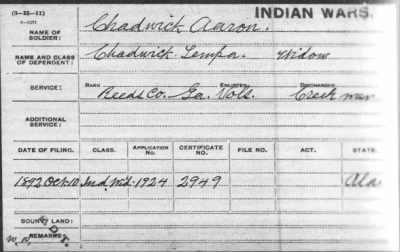 (3-II-11)
INDIAN WARS.
NAME OF SOLDIER: Chadwick Aaron.
NAME AND CLASS OF DEPENDENT: Chadwick Lempa. Widow
RANK ENLISTED DISCHARGED
SERVICE: Reeds Co. Ga. Vols. Creek war
ADDITIONAL SERVICE:
DATE OF FILING. CLASS. APPLICATION No. CERTIFICATE No. FILE NO. ACT. STATE.
1892 Oct. 10 Ind. Wid. 1924 2949 Ala
BOUNTY LAND:
REMARKS: